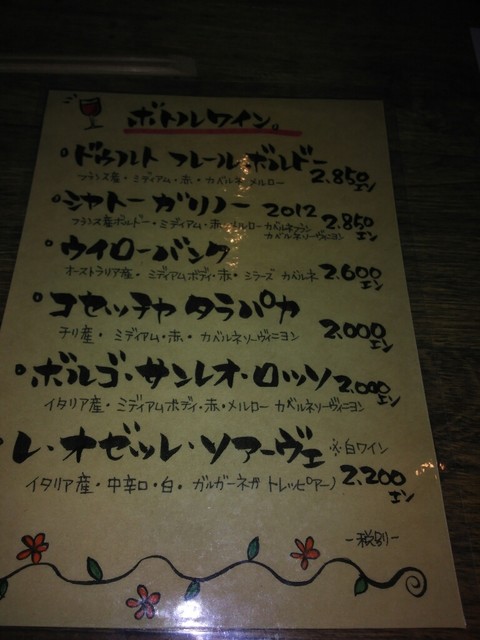 ボトルワイン。
ドゥフルト フレール・ボルドー 2,850エン
フランス産・ミディアム・赤・カベルネ・メルロー
シャトー ガリノー 2012 2,850エン
フランス産ボルドー・ミディアム・赤・メルロー カベルネフラン
カベルネソーヴィニヨン
ウイローバンク 2,600エン
オーストラリア産・ミディアムボディ・赤・シラーズ カベルネ
コセッチャ タラパカ 2,000エン
チリ産・ミディアム・赤・カベルネソーヴィニヨン
ボルゴ・サンレオ・ロッソ 2,000エン
イタリア産・ミディアムボディ・赤・メルロー カベルネソーヴィニヨン
レ・オゼッレ・ソアーヴェ ※白ワイン
イタリア産・中辛口・白・ガルガーネガ トレッビアーノ 2,200エン
-税別-